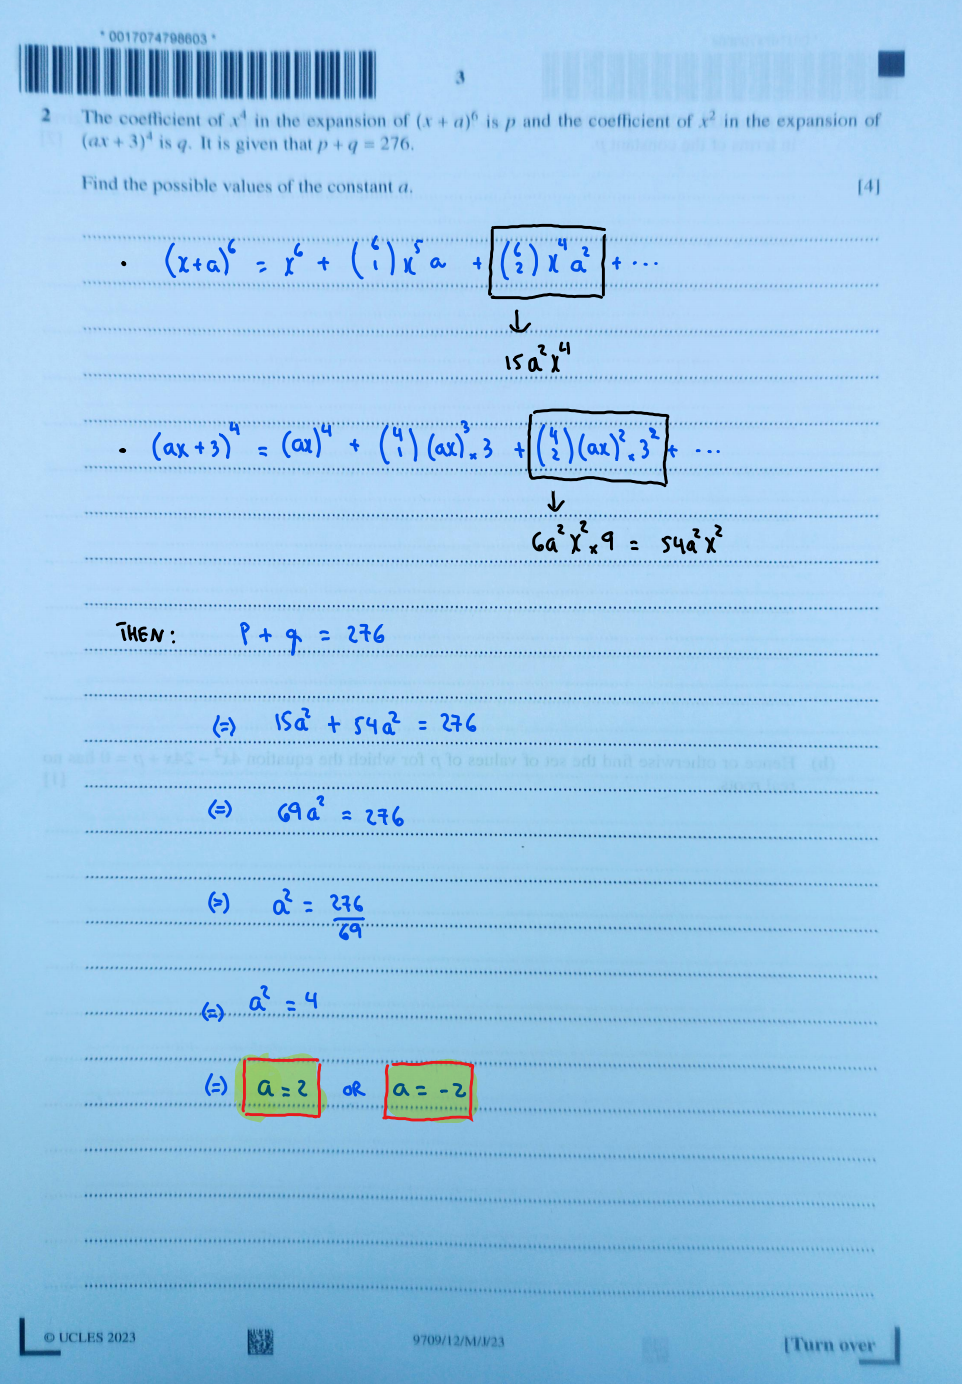 * 0017074798603 *
3
2 The coefficient of x⁴ in the expansion of (x + a)⁶ is p and the coefficient of x² in the expansion of
(ax + 3)⁴ is q. It is given that p + q = 276.
Find the possible values of the constant a. [4]
• (x+a)⁶ = x⁶ + (6 1) x⁵ a + (6 2) x⁴ a² + ...
↓
15a²x⁴
• (ax+3)⁴ = (ax)⁴ + (4 1) (ax)³ × 3 + (4 2) (ax)² × 3² + ...
↓
6a²x² × 9 = 54a²x²
THEN: P + q = 276
(=) 15a² + 54a² = 276
(=) 69a² = 276
(=) a² = 276/69
(=) a² = 4
(=) a = 2 OR a = -2
© UCLES 2023 9709/12/M/J/23 [Turn over